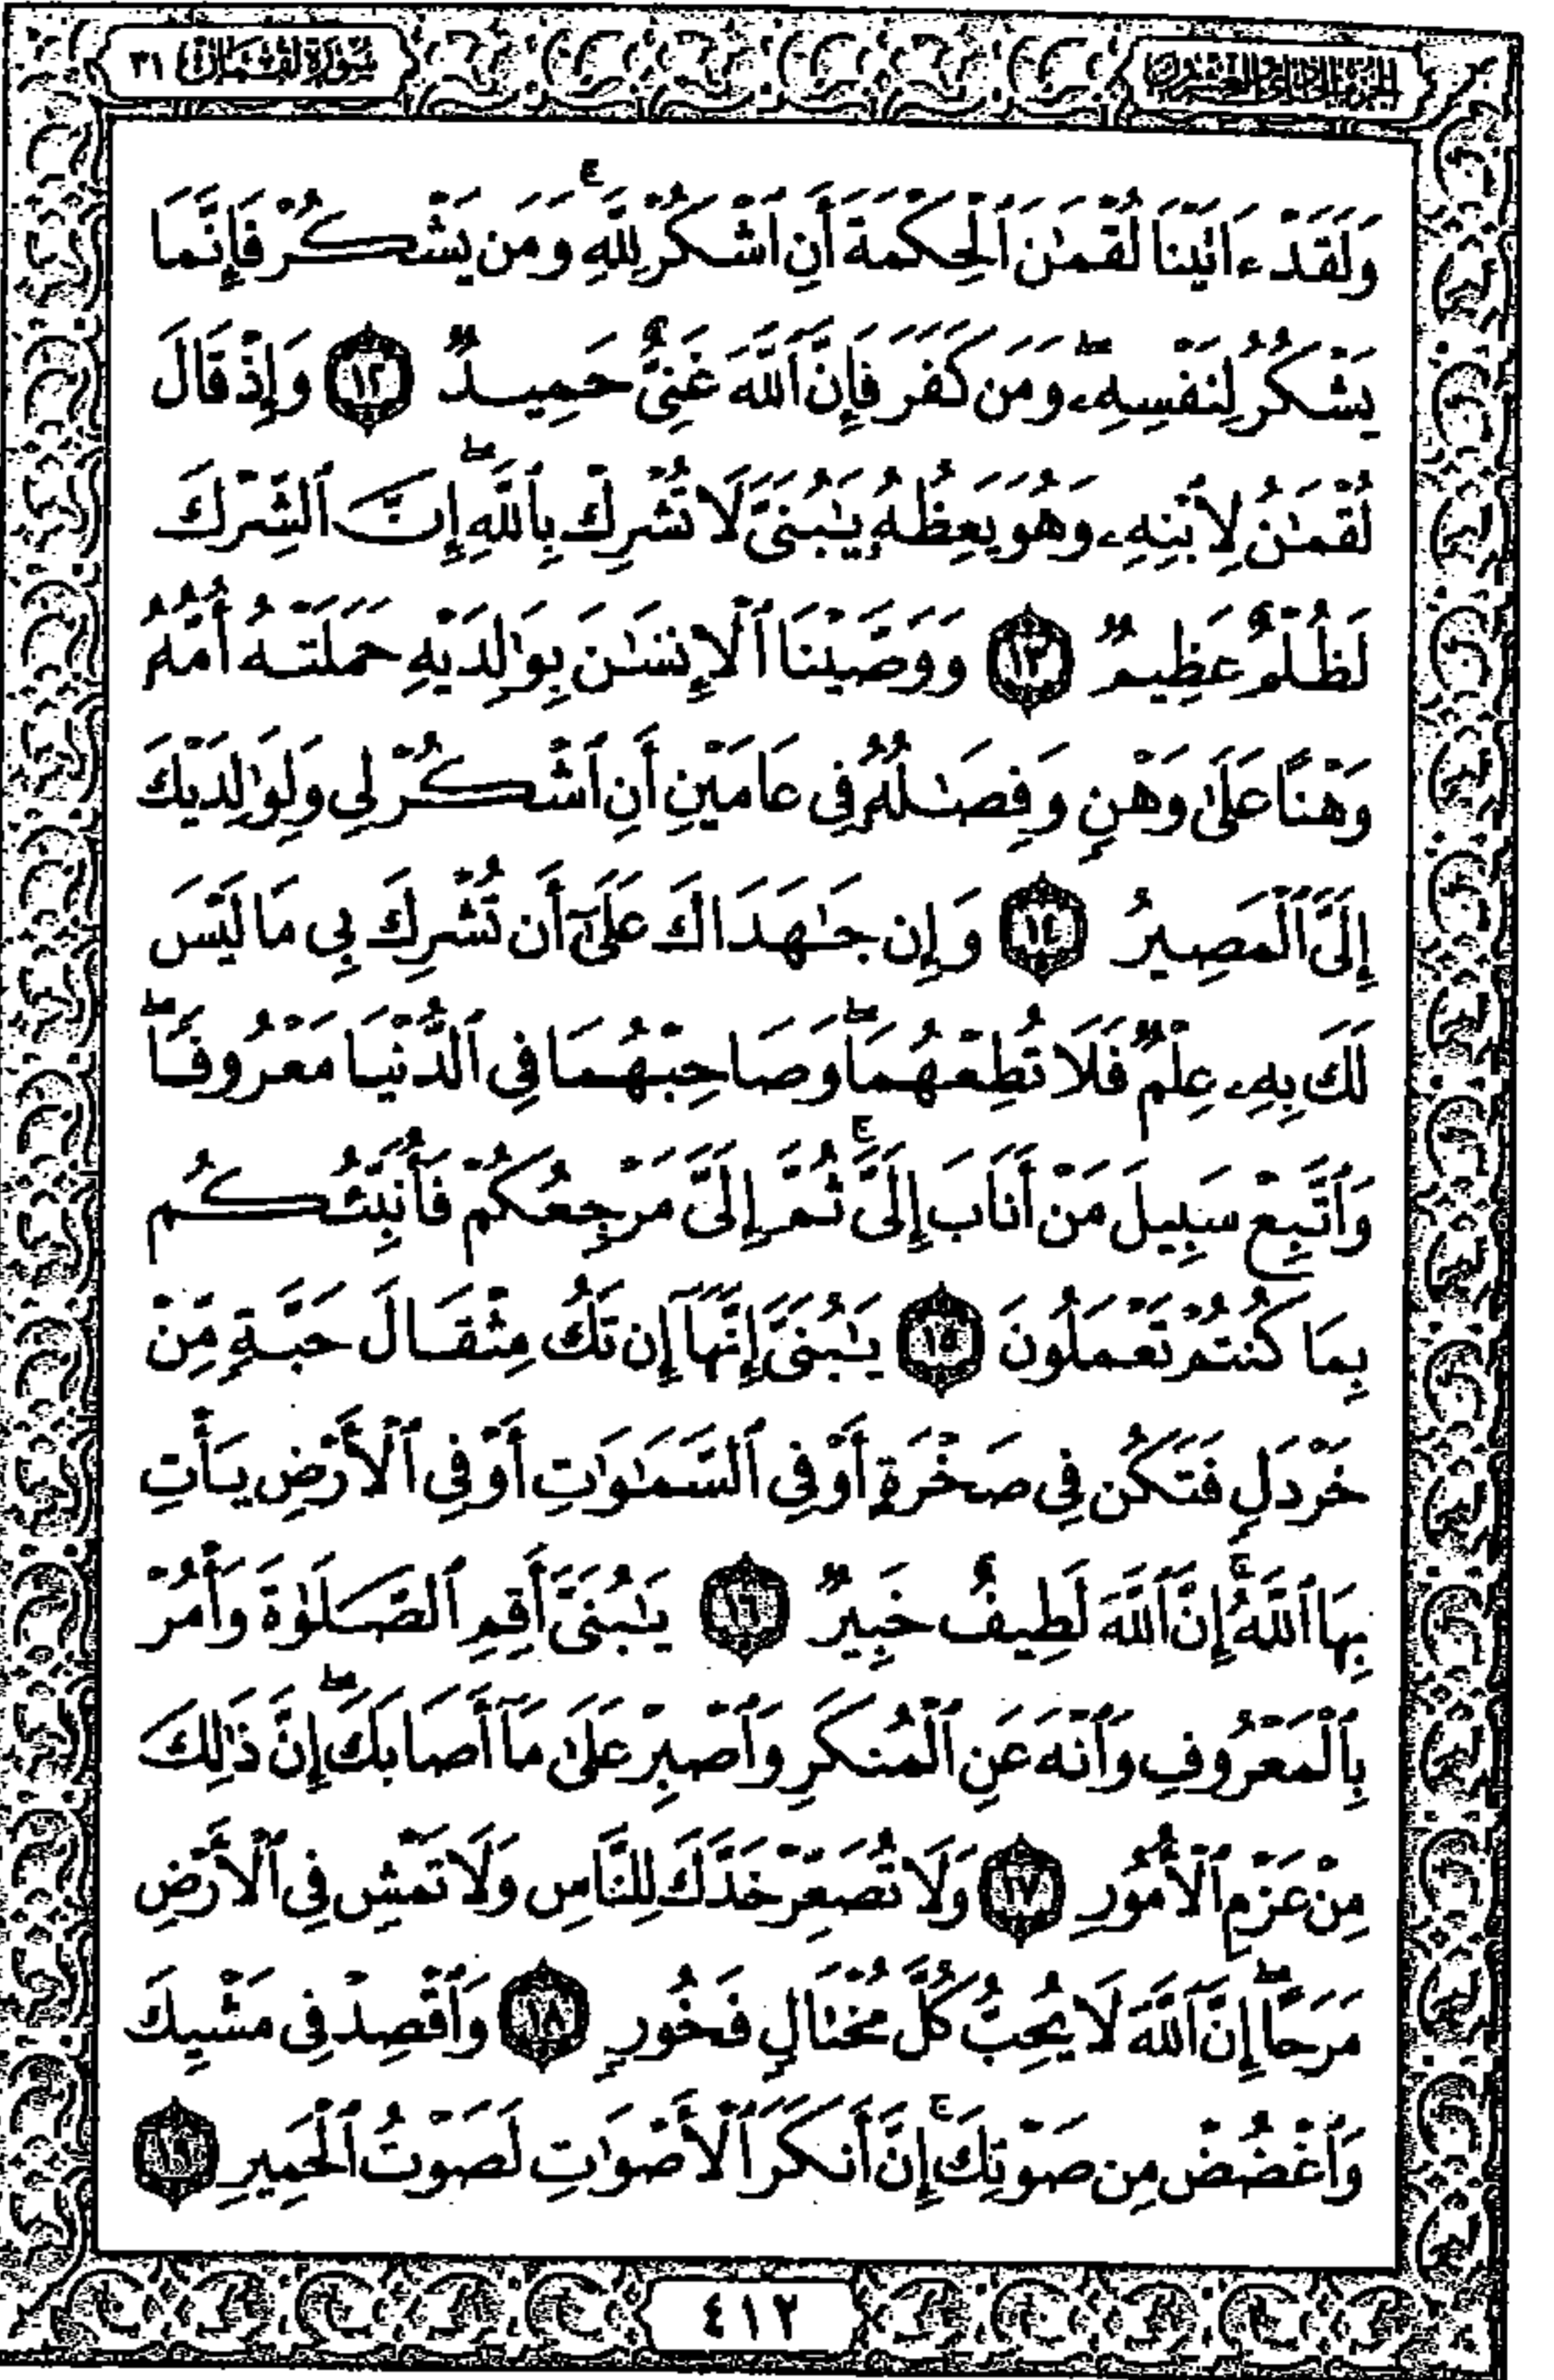 الجزء الحادي والعشرون
سورة لقمان ٣١
وَلَقَدْ ءَاتَيْنَا لُقْمَٰنَ ٱلْحِكْمَةَ أَنِ ٱشْكُرْ لِلَّهِ ۚ وَمَن يَشْكُرْ فَإِنَّمَا
يَشْكُرُ لِنَفْسِهِۦ ۖ وَمَن كَفَرَ فَإِنَّ ٱللَّهَ غَنِىٌّ حَمِيدٌ ١٢ وَإِذْ قَالَ
لُقْمَٰنُ لِٱبْنِهِۦ وَهُوَ يَعِظُهُۥ يَٰبُنَىَّ لَا تُشْرِكْ بِٱللَّهِ ۖ إِنَّ ٱلشِّرْكَ
لَظُلْمٌ عَظِيمٌ ١٣ وَوَصَّيْنَا ٱلْإِنسَٰنَ بِوَٰلِدَيْهِ حَمَلَتْهُ أُمُّهُۥ
وَهْنًا عَلَىٰ وَهْنٍ وَفِصَٰلُهُۥ فِى عَامَيْنِ أَنِ ٱشْكُرْ لِى وَلِوَٰلِدَيْكَ
إِلَىَّ ٱلْمَصِيرُ ١٤ وَإِن جَٰهَدَاكَ عَلَىٰٓ أَن تُشْرِكَ بِى مَا لَيْسَ
لَكَ بِهِۦ عِلْمٌ فَلَا تُطِعْهُمَا ۖ وَصَاحِبْهُمَا فِى ٱلدُّنْيَا مَعْرُوفًا ۖ
وَٱتَّبِعْ سَبِيلَ مَنْ أَنَابَ إِلَىَّ ۚ ثُمَّ إِلَىَّ مَرْجِعُكُمْ فَأُنَبِّئُكُم
بِمَا كُنتُمْ تَعْمَلُونَ ١٥ يَٰبُنَىَّ إِنَّهَآ إِن تَكُ مِثْقَالَ حَبَّةٍ مِّنْ
خَرْدَلٍ فَتَكُن فِى صَخْرَةٍ أَوْ فِى ٱلسَّمَٰوَٰتِ أَوْ فِى ٱلْأَرْضِ يَأْتِ
بِهَا ٱللَّهُ ۚ إِنَّ ٱللَّهَ لَطِيفٌ خَبِيرٌ ١٦ يَٰبُنَىَّ أَقِمِ ٱلصَّلَوٰةَ وَأْمُرْ
بِٱلْمَعْرُوفِ وَٱنْهَ عَنِ ٱلْمُنكَرِ وَٱصْبِرْ عَلَىٰ مَآ أَصَابَكَ ۖ إِنَّ ذَٰلِكَ
مِنْ عَزْمِ ٱلْأُمُورِ ١٧ وَلَا تُصَعِّرْ خَدَّكَ لِلنَّاسِ وَلَا تَمْشِ فِى ٱلْأَرْضِ
مَرَحًا ۖ إِنَّ ٱللَّهَ لَا يُحِبُّ كُلَّ مُخْتَالٍ فَخُورٍ ١٨ وَٱقْصِدْ فِى مَشْيِكَ
وَٱغْضُضْ مِن صَوْتِكَ ۚ إِنَّ أَنكَرَ ٱلْأَصْوَٰتِ لَصَوْتُ ٱلْحَمِيرِ ١٩
٤١٢